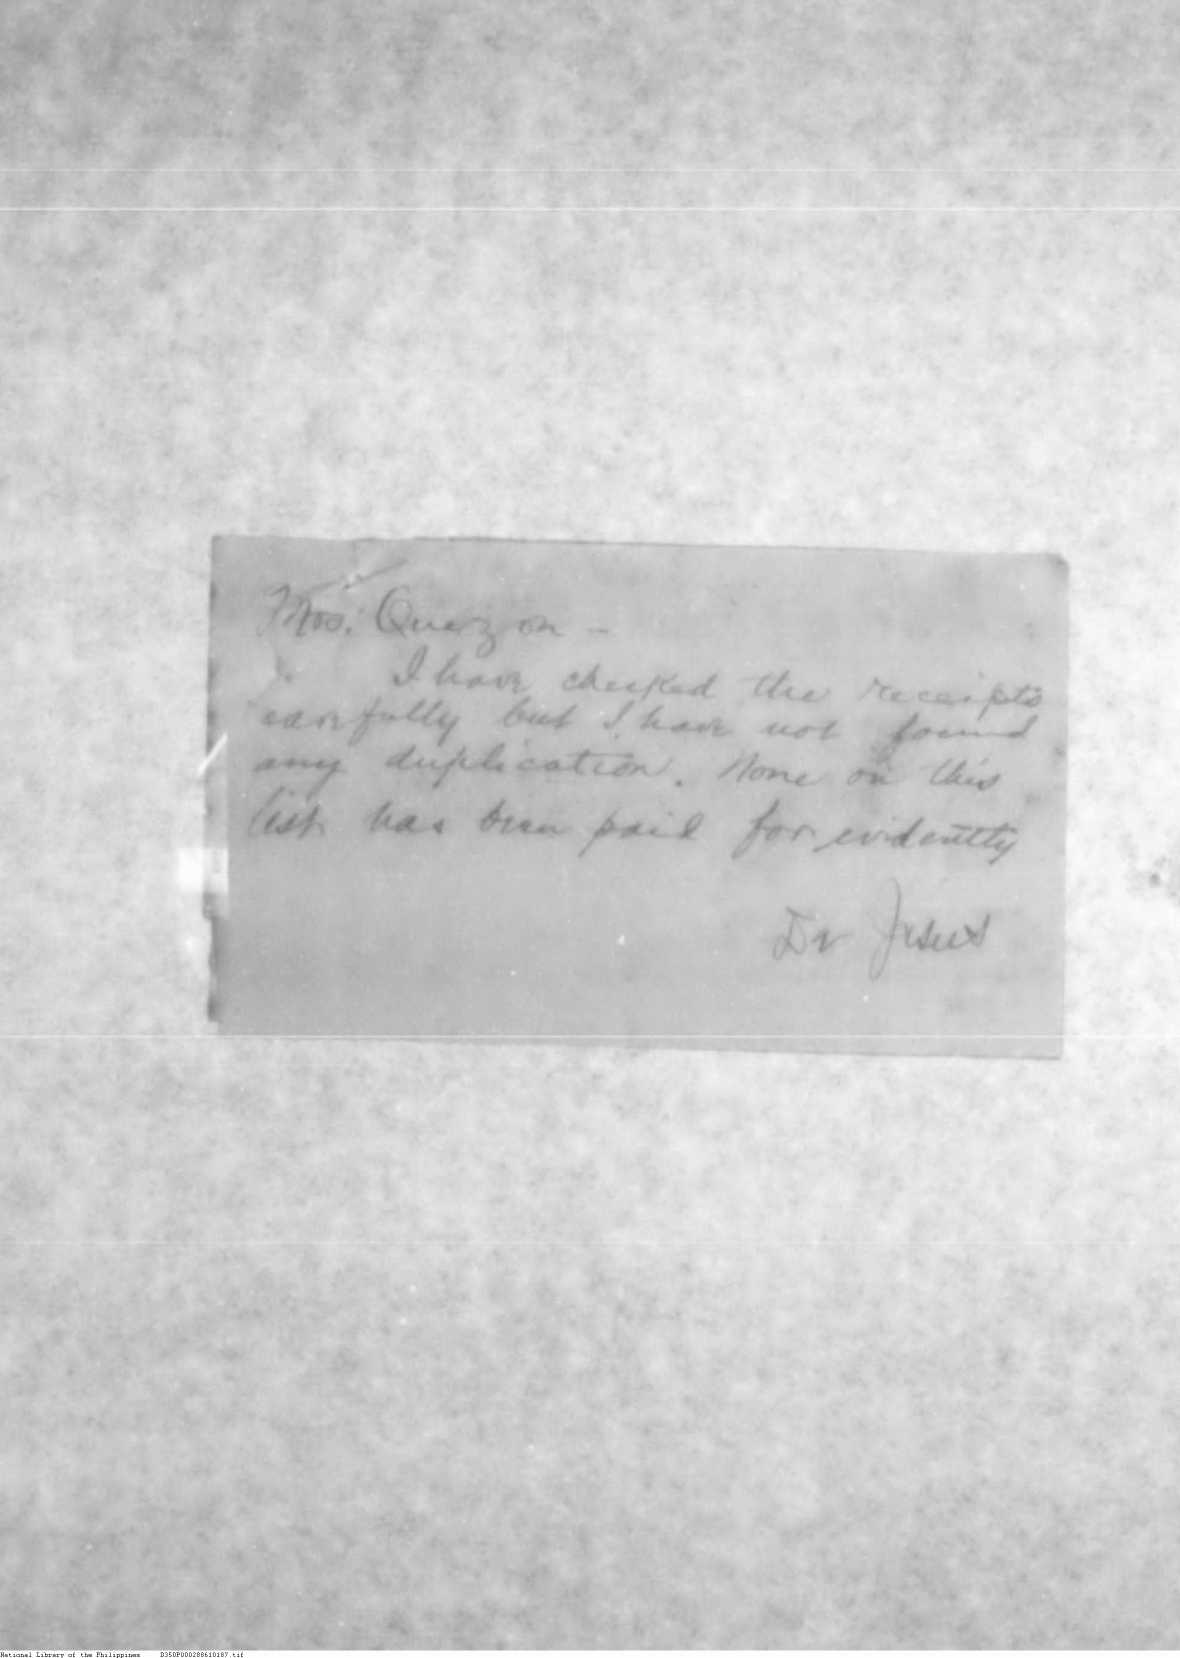 Mrs. Quezon -
I have checked the receipts
carefully but I have not found
any duplication. None on this
list has been paid for evidently
Dr Jesus
National Library of the Philippines D350P000288610187.tif